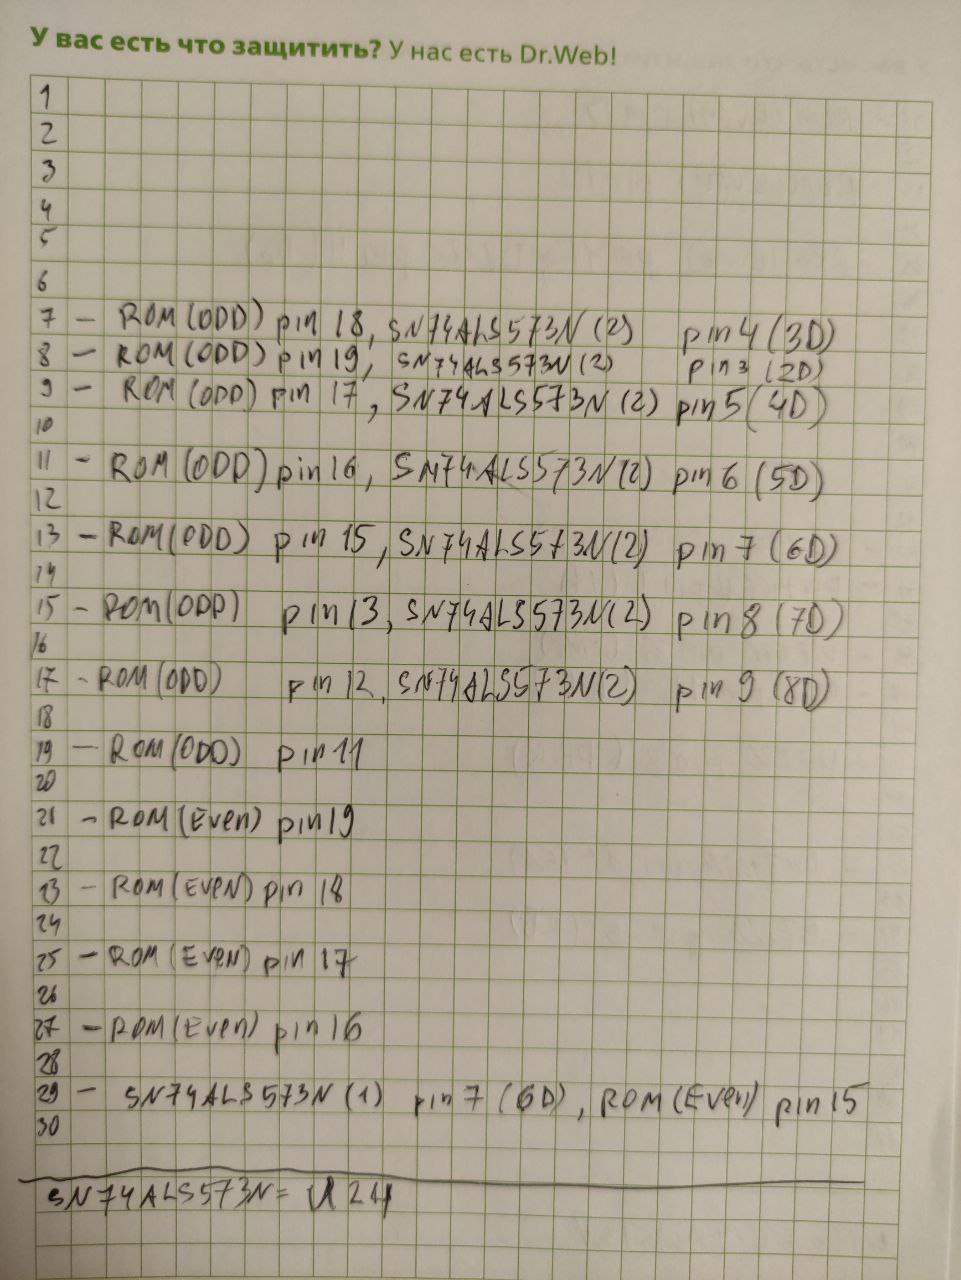 У вас есть что защитить? У нас есть Dr.Web!
1
2
3
4
5
6
7 - ROM(ODD) pin 18, SN74ALS573N(2) pin 4 (3D)
8 - ROM(ODD) pin 19, SN74ALS573N(2) pin 3 (2D)
9 - ROM(ODD) pin 17, SN74ALS573N(2) pin 5 (4D)
10
11 - ROM(ODD) pin 16, SN74ALS573N(2) pin 6 (5D)
12
13 - ROM(ODD) pin 15, SN74ALS573N(2) pin 7 (6D)
14
15 - ROM(ODD) pin 13, SN74ALS573N(2) pin 8 (7D)
16
17 - ROM(ODD) pin 12, SN74ALS573N(2) pin 9 (8D)
18
19 - ROM(ODD) pin 11
20
21 - ROM(Even) pin 19
22
23 - ROM(EVEN) pin 18
24
25 - ROM(Even) pin 17
26
27 - ROM(Even) pin 16
28
29 - SN74ALS573N(1) pin 7 (6D), ROM(Even) pin 15
30
SN74ALS573N=